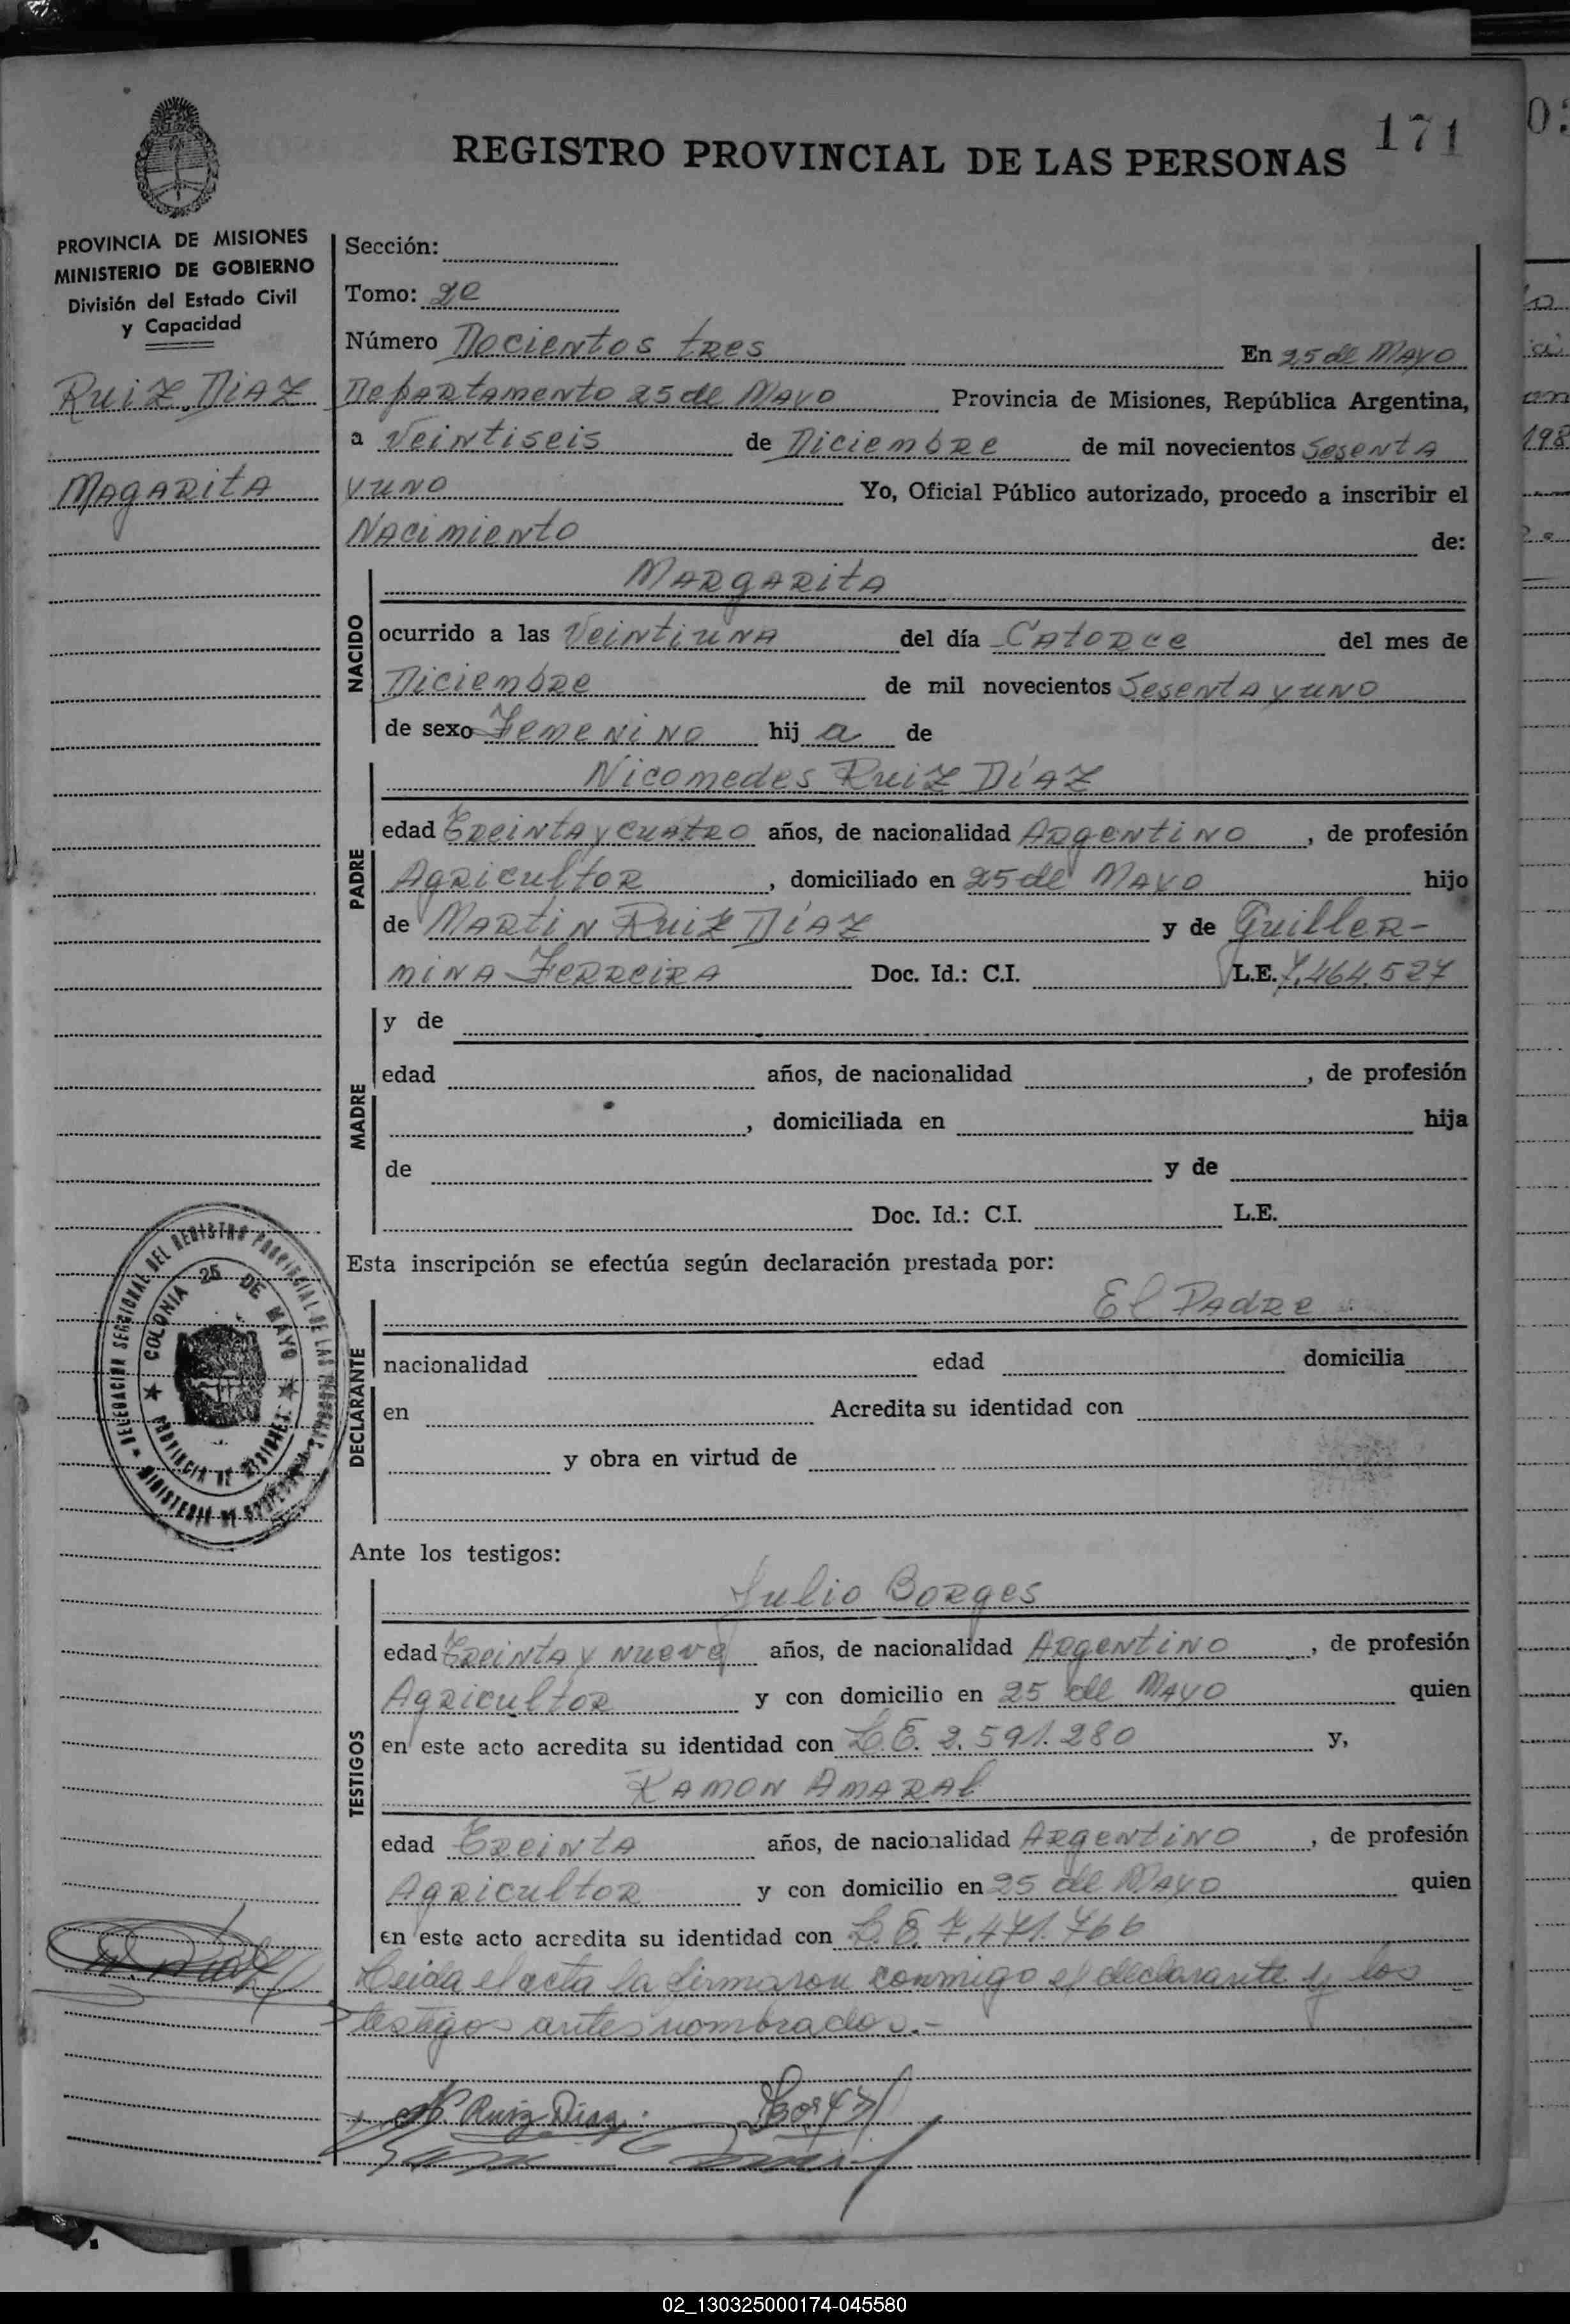 171
REGISTRO PROVINCIAL DE LAS PERSONAS
PROVINCIA DE MISIONES
MINISTERIO DE GOBIERNO
División del Estado Civil
y Capacidad
RUIZ DIAZ
MAGARITA
Sección:
Tomo: 2º
Número Docientos tres En 25 de MAYO
Departamento 25 de MAYO Provincia de Misiones, República Argentina,
a Veintiseis de Diciembre de mil novecientos Sesenta
y uno Yo, Oficial Público autorizado, procedo a inscribir el
Nacimiento de:
NACIDO
MARGARITA
ocurrido a las Veintiuna del día Catorce del mes de
Diciembre de mil novecientos Sesenta y uno
de sexo Femenino hij a de
PADRE
Nicomedes Ruiz Díaz
edad Treinta y cuatro años, de nacionalidad Argentino, de profesión
Agricultor, domiciliado en 25 de Mayo hijo
de Martín Ruiz Díaz y de Guiller-
mina Ferreira Doc. Id.: C.I. L.E. 7.464.527
MADRE
y de
edad años, de nacionalidad , de profesión
, domiciliada en hija
de y de
Doc. Id.: C.I. L.E.
Esta inscripción se efectúa según declaración prestada por:
DECLARANTE
El Padre
nacionalidad edad domicilia
en Acredita su identidad con
y obra en virtud de
DELEGACION SECCIONAL DEL REGISTRO PROVINCIAL DE LAS PERSONAS
COLONIA 25 DE MAYO
PROVINCIA DE MISIONES
MINISTERIO DE GOBIERNO
Ante los testigos:
TESTIGOS
Julio Borges
edad Treinta y nueve años, de nacionalidad Argentino, de profesión
Agricultor y con domicilio en 25 de Mayo quien
en este acto acredita su identidad con L.E. 2.591.280 y,
Ramon Amaral
edad Treinta años, de nacionalidad Argentino, de profesión
Agricultor y con domicilio en 25 de Mayo quien
en este acto acredita su identidad con L.E. 7.471.766
Leida el acta la firmaron conmigo el declarante y los
testigos antes nombrados.-
N. Ruiz Diaz.
02_130325000174-045580